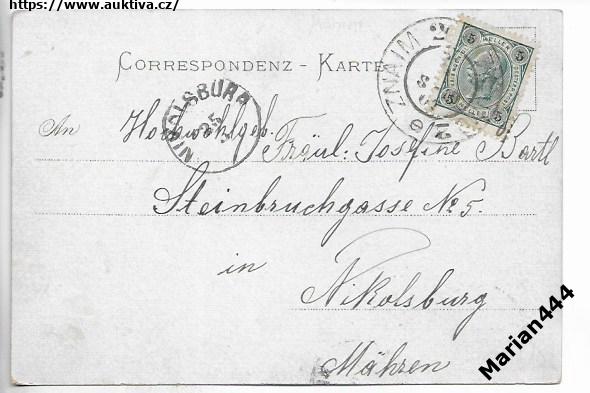 https://www.auktiva.cz/
CORRESPONDENZ - KARTE
ZNAIM
NIKOLSBURG
25
5 HELLER 5
5 5
An Hochwohlgeb.
Fräul: Josefine Bartl
Steinbruchgasse No 5.
in
Nikolsburg
Mähren
Marian444